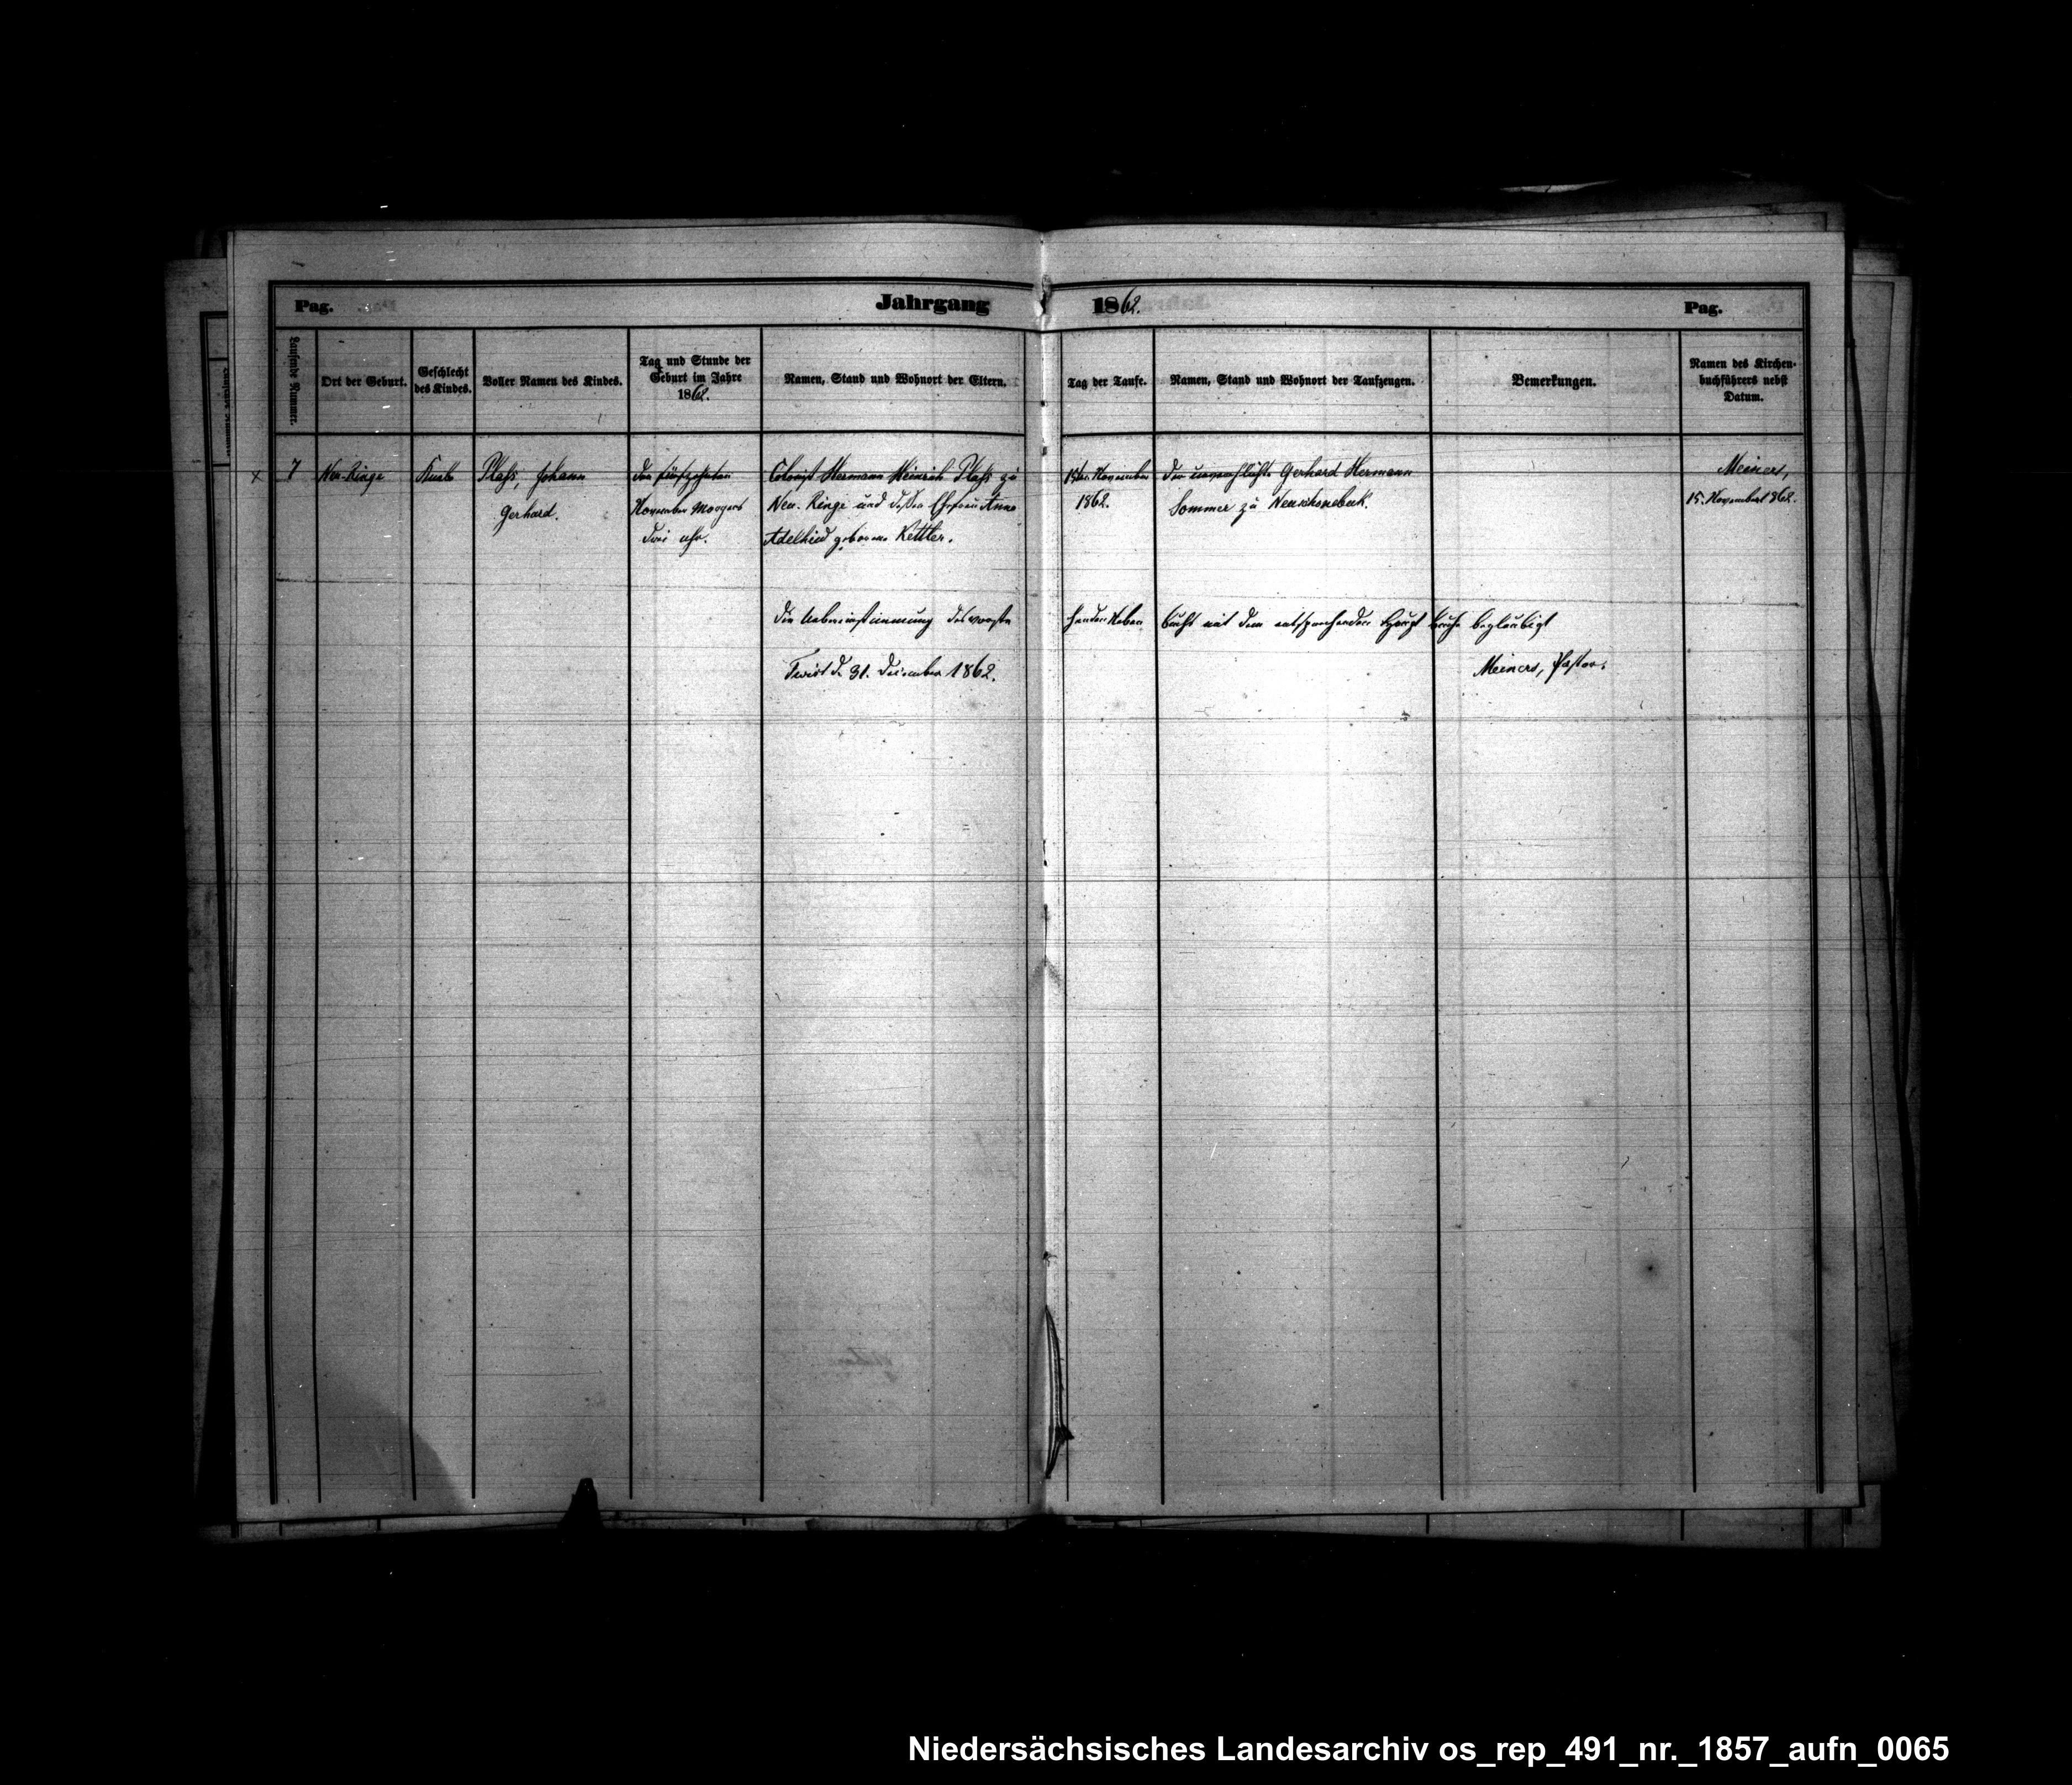 Pag.
Jahrgang
1862.
Pag.
Laufende Nummer.
Ort der Geburt.
Geschlecht
des Kindes.
Voller Namen des Kindes.
Tag und Stunde der
Geburt im Jahre
1862.
Namen, Stand und Wohnort der Eltern.
Tag der Taufe.
Namen, Stand und Wohnort der Taufzeugen.
Bemerkungen.
Namen des Kirchen-
buchführers nebst
Datum.
7
Neu-Ringe
Knabe
Plaß, Johann
Gerhard.
den fünfzehnten
November Morgens
drei Uhr.
Colonist Hermann Heinrich Plaß zu
Neu-Ringe und dessen Ehefrau Anna
Adelheid geborene Kettler.
15ten November
1862.
der unverehlichte Gerhard Hermann
Sommer zu Neuschonebeek.
Meiners,
15. November 1862.
Die Uebereinstimmung des vorste
henden Neben
buchs mit dem entsprechenden Haupt buche beglaubigt
Twist d. 31. December 1862.
Meiners, Pastor.
Niedersächsisches Landesarchiv os_rep_491_nr._1857_aufn_0065